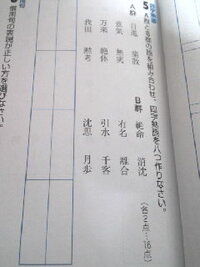 5 A群とB群の語を組み合わせ、四字熟語を八つ作りなさい。
(各2点…16点)
A群 日進 集散
意気 無実
万来 絶体
我田 黙考
B群 絶命 消沈
有名 離合
引水 千客
沈思 月歩
慣用句の表現が正しい方を選びなさい。